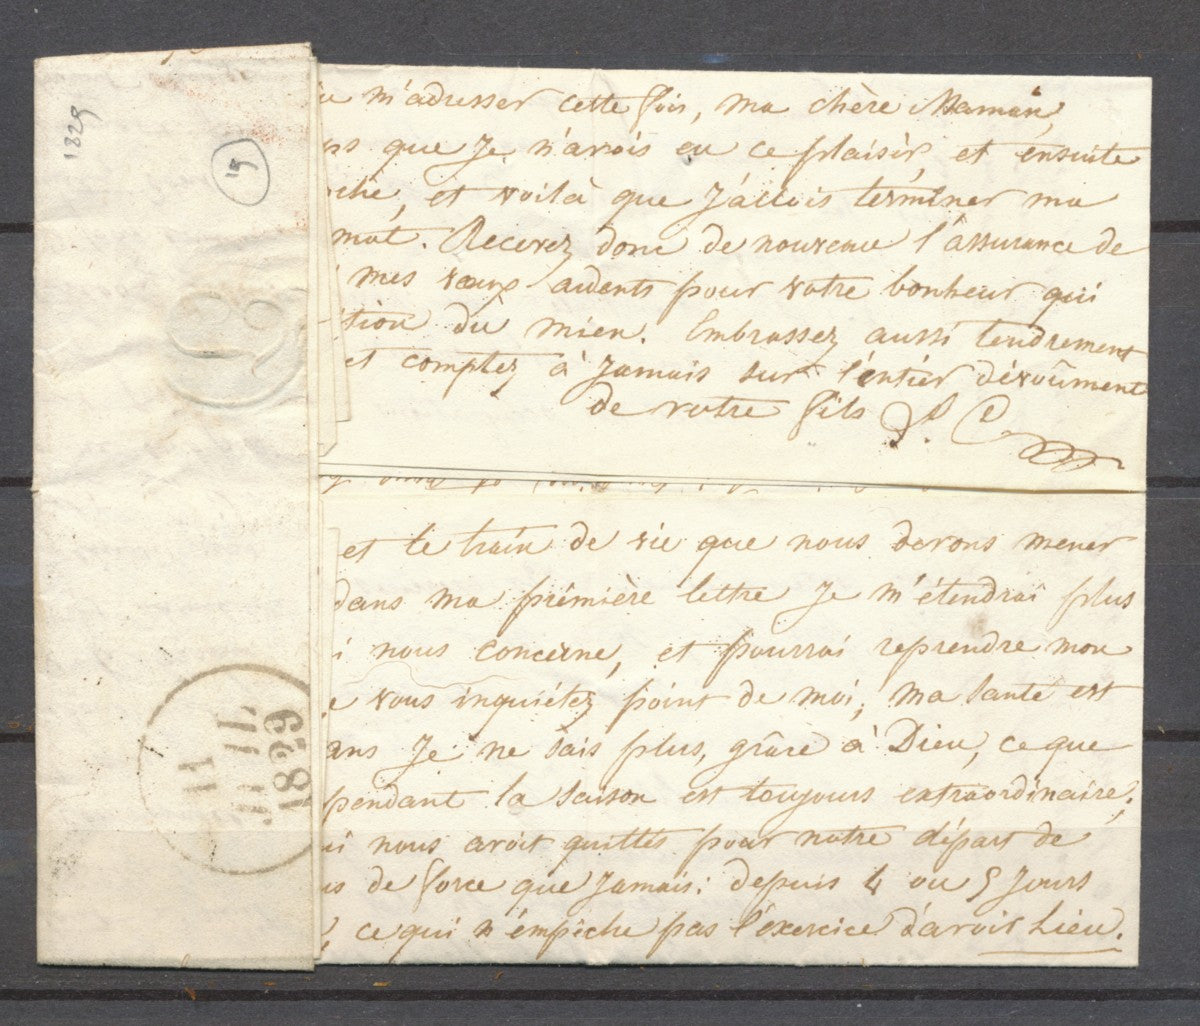 1829
15
m'adresser cette fois, ma chère Maman,
que Je n'avois eu ce plaisir, et ensuite
et voilà que J'allois terminer ma
mot. Recevez donc de nouveau l'assurance de
mes vœux ardents pour votre bonheur qui
du mien. Embrassez aussi tendrement
et comptez à Jamais sur l'entier dévoûment
de votre fils
et le train de vie que nous devons mener
dans ma prémière lettre Je m'étendrai plus
nous concerne, et pourrai reprendre mon
vous inquiétez point de moi, ma santé est
ans Je ne sais plus, grâce à Dieu, ce que
pendant la saison est toujours extraordinaire;
nous avoit quittés pour notre départ de
de force que Jamais: depuis 4 ou 5 Jours
, ce qui n'empêche pas l'éxercice d'avoir Lieu.
11
1829